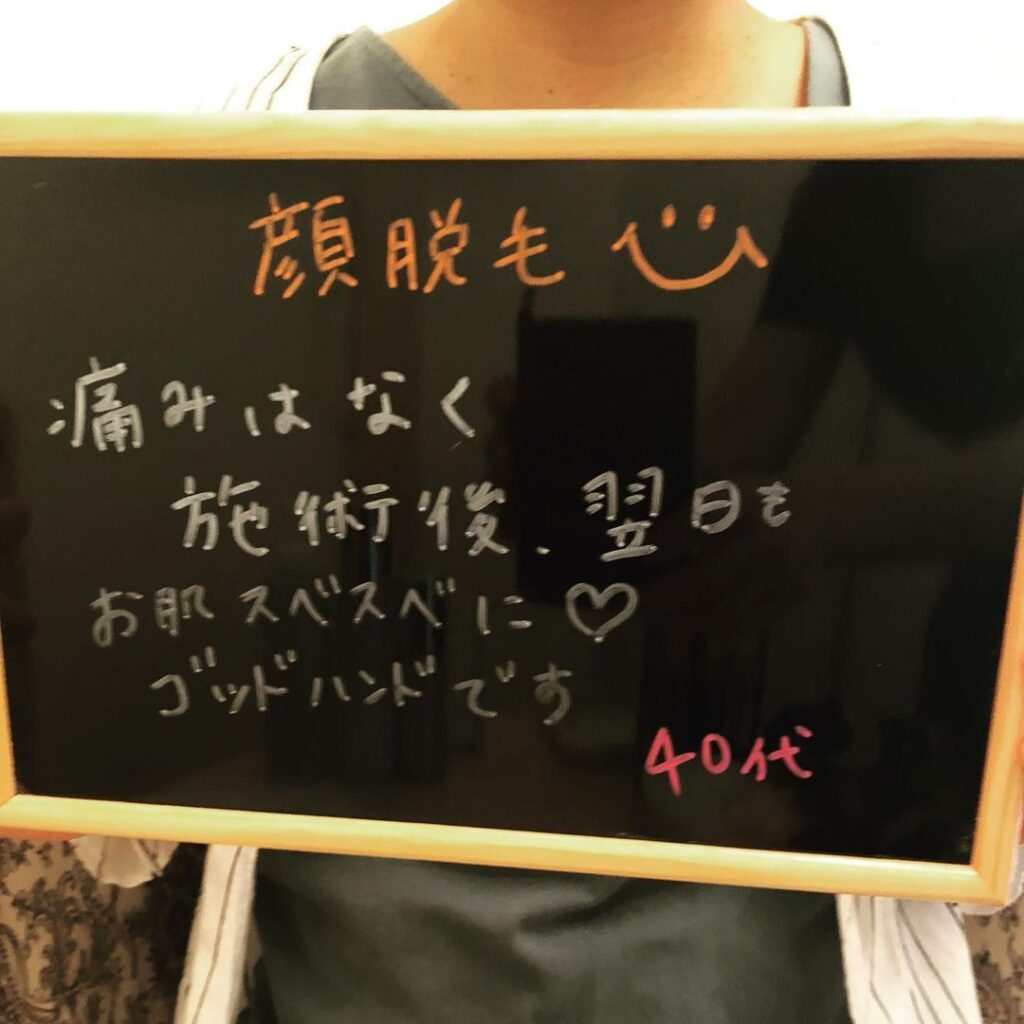 顔脱毛
痛みはなく
施術後、翌日も
お肌スベスベに♡
ゴッドハンドです
40代